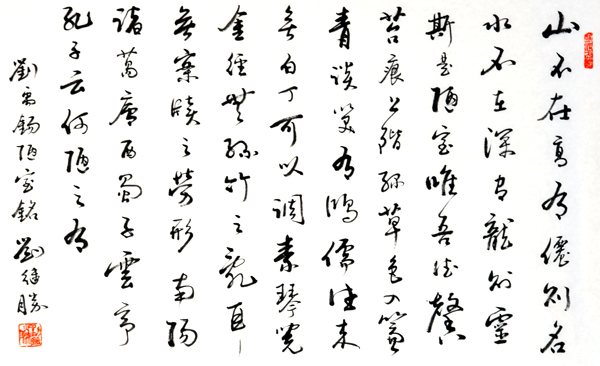 山不在高有僊則名
水不在深有龍則靈
斯是陋室唯吾德馨
苔痕上階綠草色入簾
青談笑有鴻儒往来
無白丁可以調素琴閱
金經無絲竹之亂耳
無案牘之勞形南陽
諸葛廬西蜀子雲亭
孔子云何陋之有
劉禹錫陋室銘 劉继勝